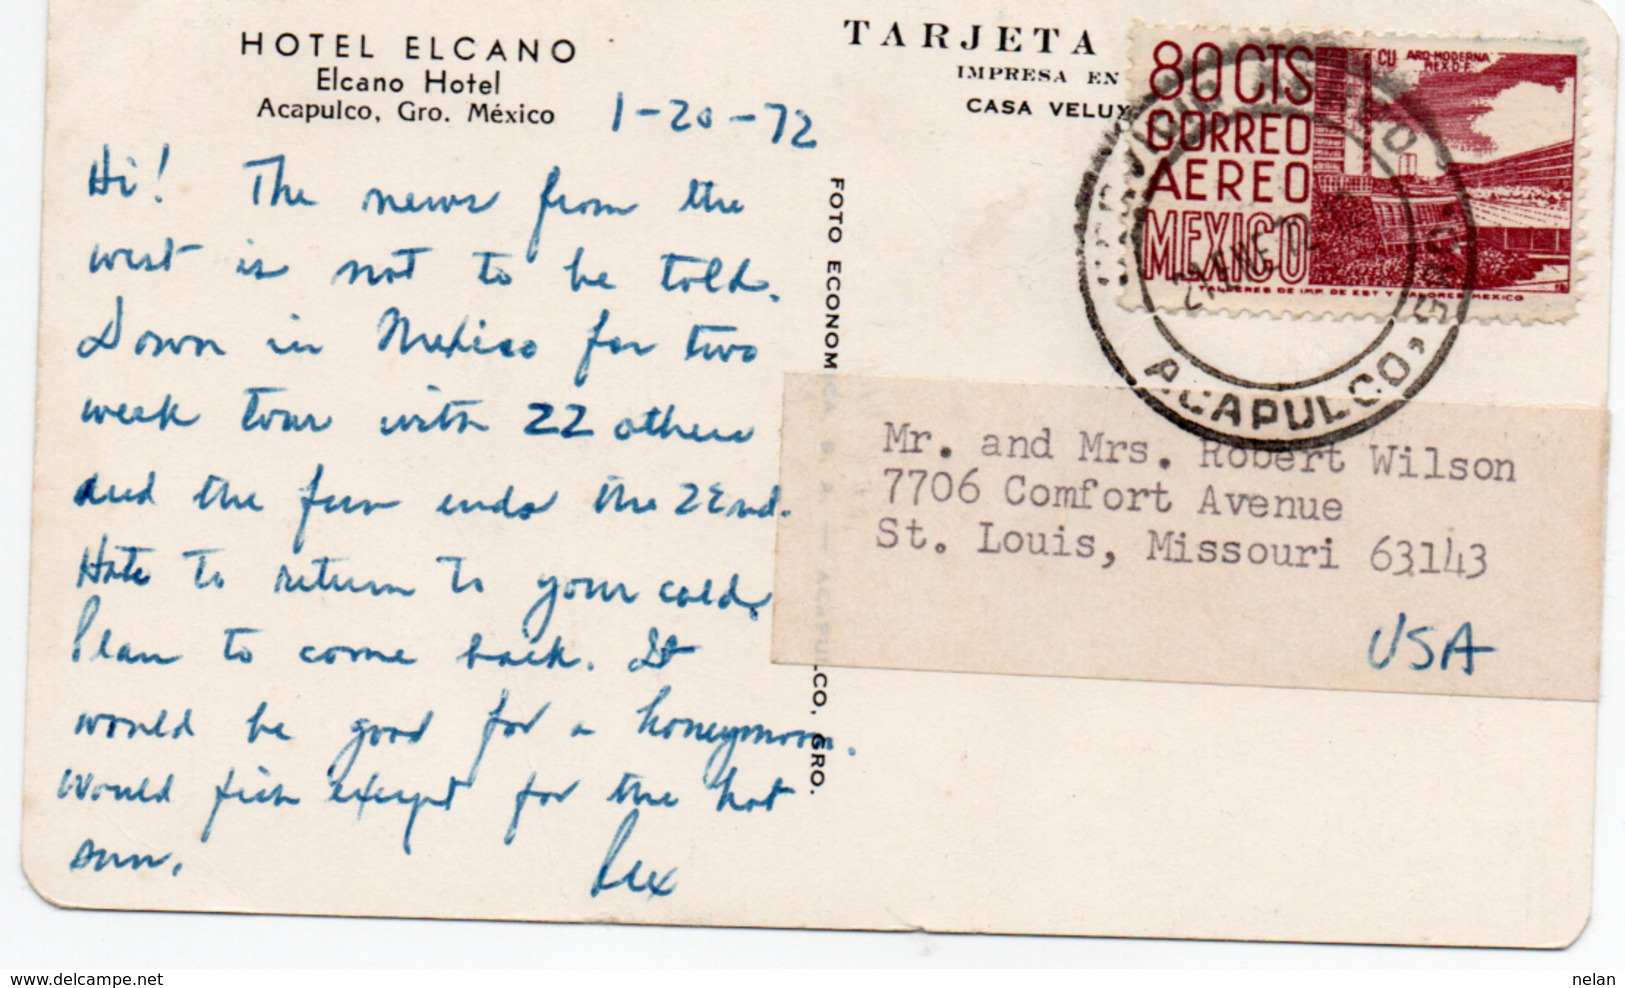 HOTEL ELCANO
Elcano Hotel
Acapulco, Gro. México
1-20-72
Hi! The news from the
west is not to be told.
Down in Mexico for two
week tour with 22 others
and the fun ends the 22nd.
Hate to return to your cold.
Plan to come back. It
would be good for a honeymoon.
Would fish except for the hot
sun. Rex
TARJETA
IMPRESA EN
CASA VELUX
FOTO ECONOMICA S. A. — ACAPULCO, GRO.
80 CTS
CORREO
AEREO
MEXICO
CU ARQ-MODERNA
MEX.D.F.
TALLERES DE IMP. DE EST Y VALORES MEXICO
21 ENE 72
ACAPULCO,
Mr. and Mrs. Robert Wilson
7706 Comfort Avenue
St. Louis, Missouri 63143
USA
www.delcampe.net
nelan